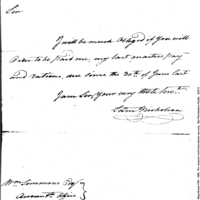 Sir
I will be much Obliged if You will
Order to be paid me, my last quarters pay
and rations, due since the 30th of June last
I am Sir, Your very Hble Servt.
Saml Nicholson
Wm Simmons Esqr
Accomts Office